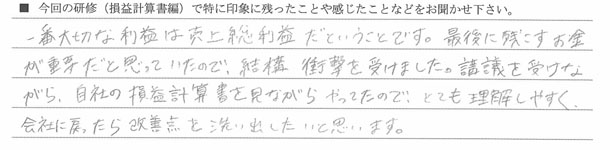 ■ 今回の研修（損益計算書編）で特に印象に残ったことや感じたことなどをお聞かせ下さい。
一番大切な利益は売上総利益だということです。最後に残こすお金
が重要だと思っていたので、結構 衝撃を受けました。講議を受けな
がら、自社の損益計算書を見ながらやってたので、とても理解しやすく、
会社に戻ったら改善点を洗い出したいと思います。